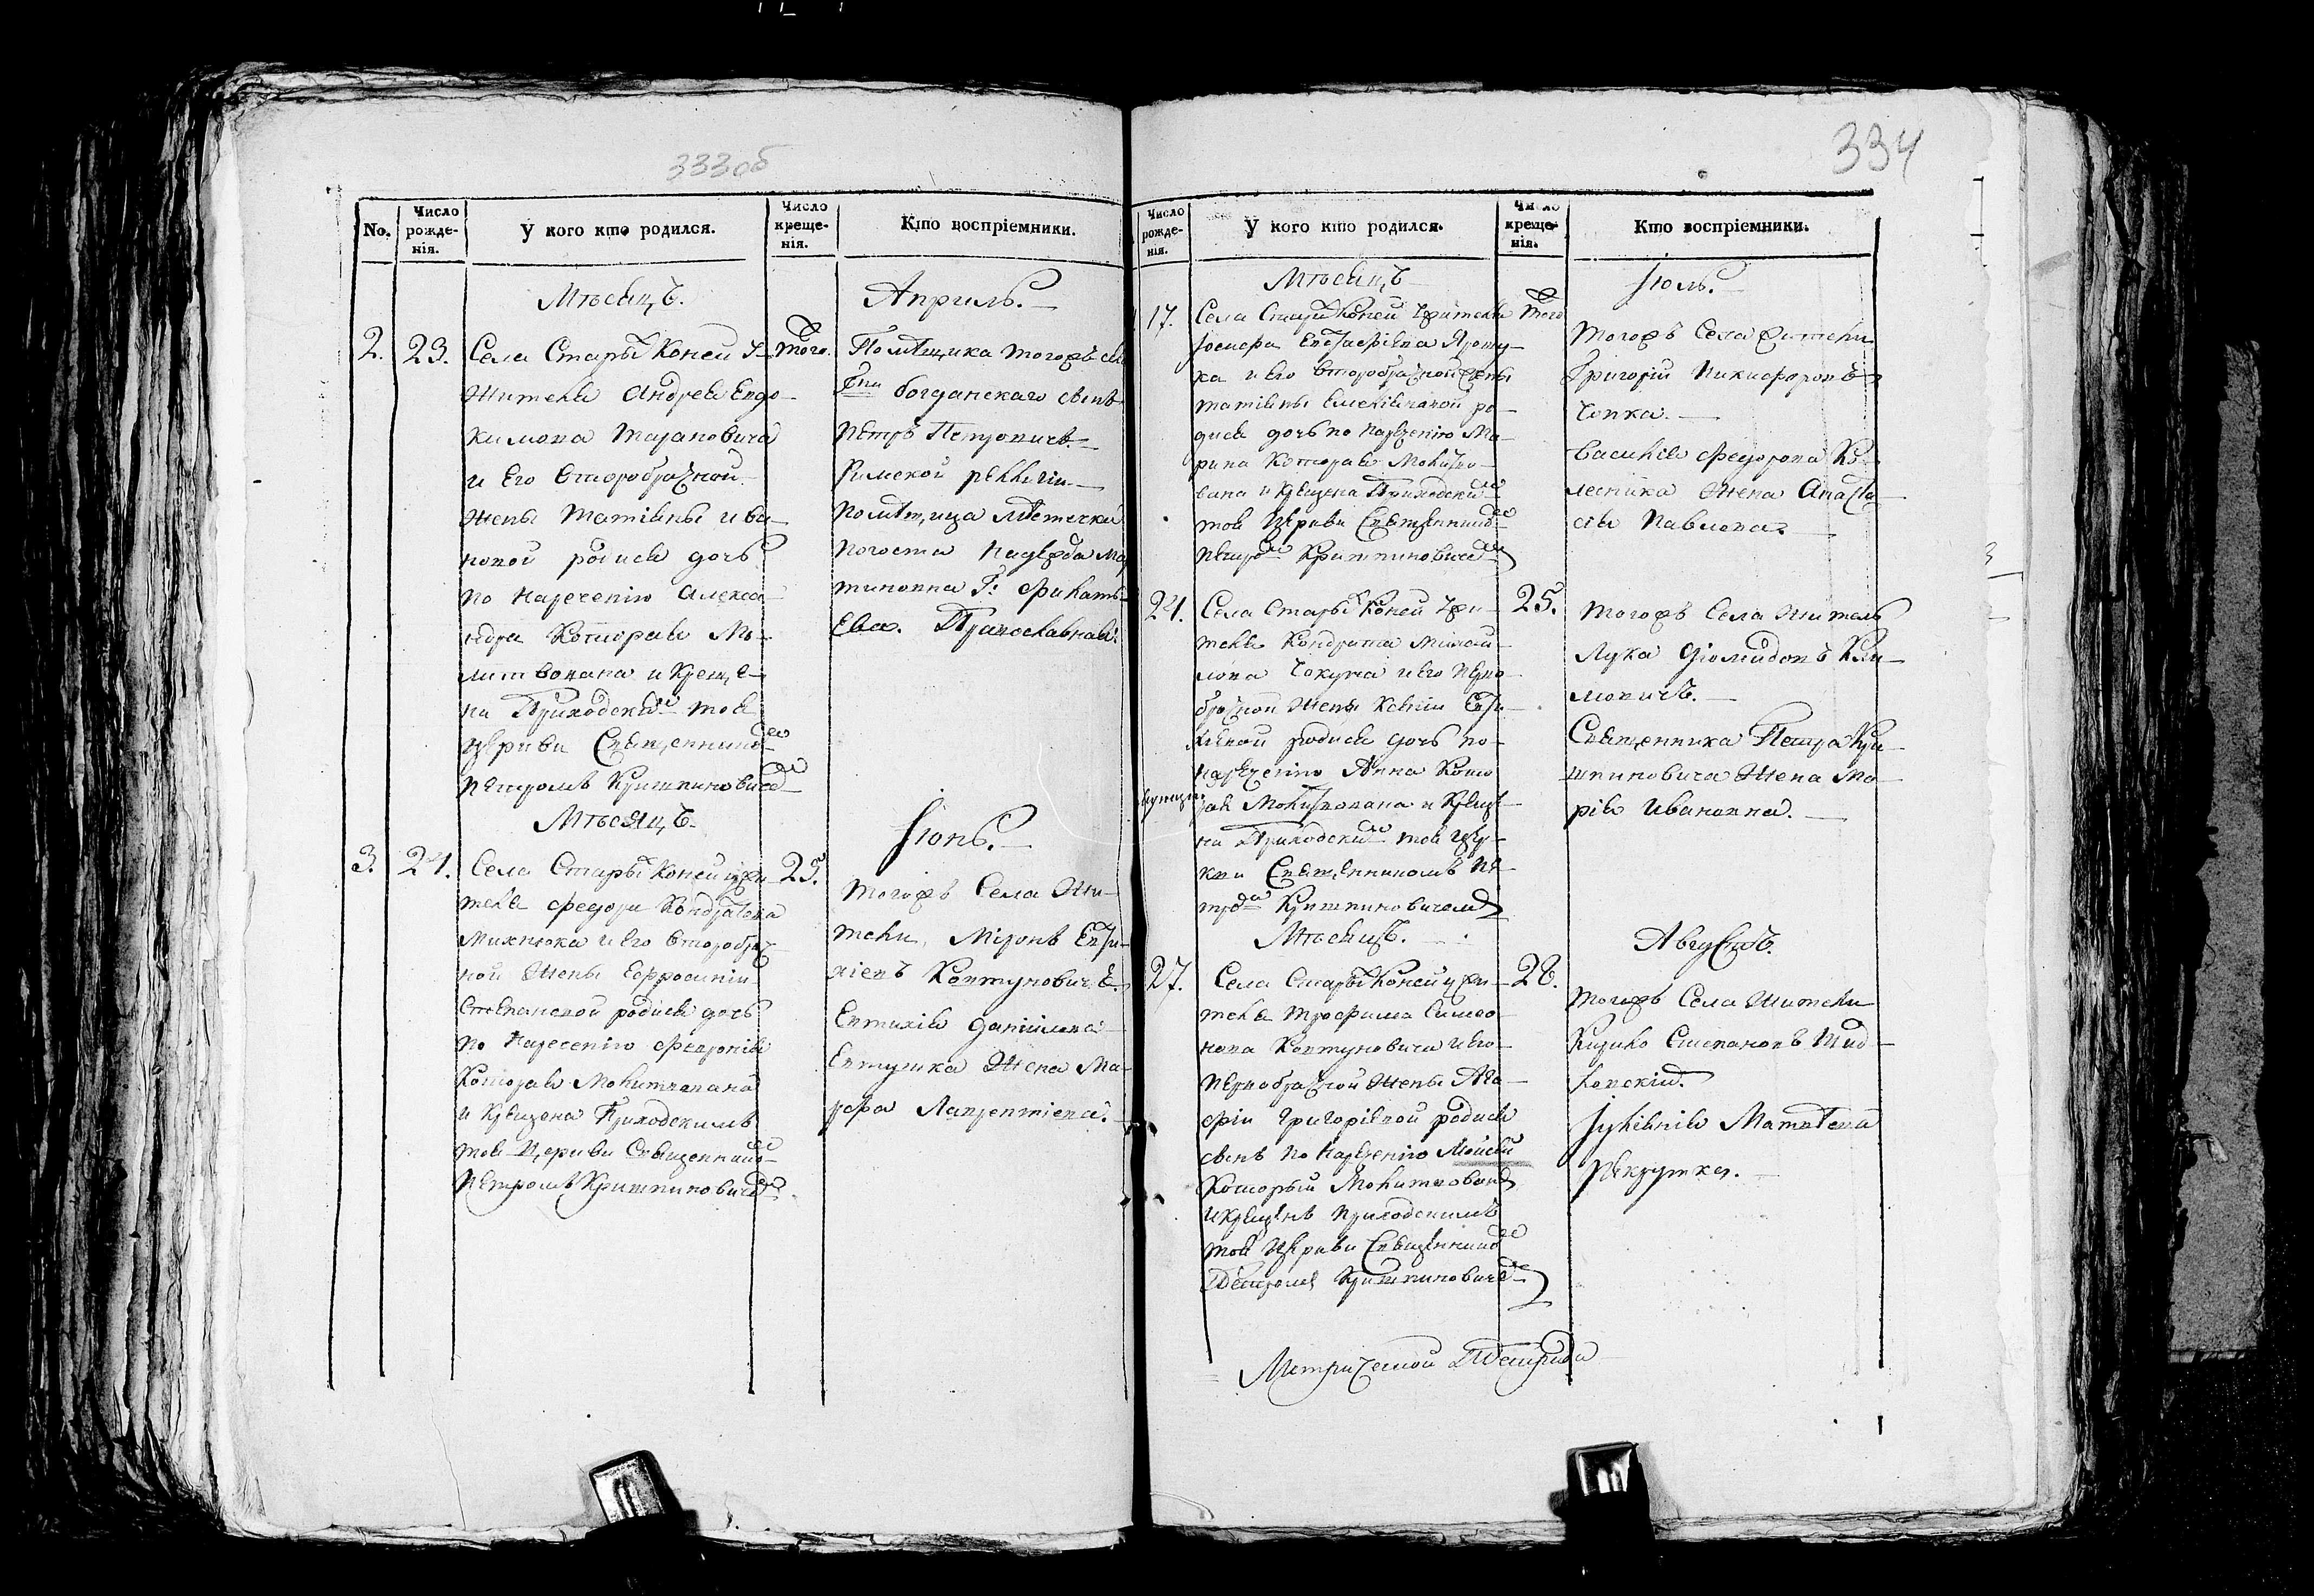 333 об
No.
Число рожде-нія.
У кого кто родился.
Число креще-нія.
Кто воспріемники.
Мѣсяцъ.
Апрѣль.
2.
23.
Села Стары Коней
жителя Андрея Евдо-
кимова
и Его второбрачной
жены Татіяны Ива-
новой родися дочь
по наречению Алекса-
ндра которая Мо-
литвована и Креще-
на Приходским той
церкви Священнико
Петромъ Криштиновичем
того.
Помѣщика тогожъ се
Богданскаго сынъ
Петръ Петровичъ
Римской релилигіи
Помѣщица мѣстечка
Погоста Надежда Ма
тиновна Г:
Ева. Православная.
Мѣсяцъ.
Іюнь.
3.
24.
Села Стары Коней жи
теля Федора Кондратова
Михнюка и Его второбрач
ной жены Ефросиніи
Степановой родися дочь
по наречению Февронія
Которая Молитвована
и Крещена Приходскимъ
той Церкви Священнико
Петромъ Криштиновичем
25.
тогожъ Села Жи-
тели, Міронъ Евти-
хіевъ Ковтуновичъ.
Евтихія Даніилова
Евтушка Жена Ма-
рфа Лаврентіева.
334
Число рожде-нія.
У кого кто родился.
Число креще-нія.
Кто воспріемники.
Мѣсяцъ
Іюль.
17.
Села Стары Коней Жителя
Іосифа Евстафіева Ярому-
ка и Его второбрачной жены
Татіяны Емеліяновой ро-
дися дочь по наречению Ма-
рина Которая Молитво-
вана и Крещена Приходским
той Церкви Священнико
Петром Криштиновичем
того
тогожъ Села жители
Григорій Никифоровъ
Василія Федорова Ко-
лесника Жена Анаста-
сія Павлова.
24.
Села Стары Коней Жи-
теля Кондрата Михай-
лова и Его перво-
брачной Жены Ксеніи Евти-
хіевой родися дочь по
наречению Анна Кото
рая Молитвована и Креще
на Приходским той Цер-
кви Священникомъ Пе-
тром Криштиновичем
25.
тогожъ Села Житель
Лука Діомидовъ Кли-
мовичъ.
Священника Петра Кри-
штиновича Жена Ма-
рія Ивановна.
Мѣсяцъ.
Августъ.
27.
Села Стары Коней жи-
теля Трофима Симео-
нова Ковтуновича и Его
первобрачной Жены Ага-
фіи Григоріевой родися
сынъ по наречению Мойсей
Который Молитвованъ
и Крещенъ Приходскимъ
той Церкви Священнико
Петромъ Криштиновичем
28.
тогожъ Села Жители
Кирило Степановъ Шид-
ловскій.
Іуліянія Матвѣева